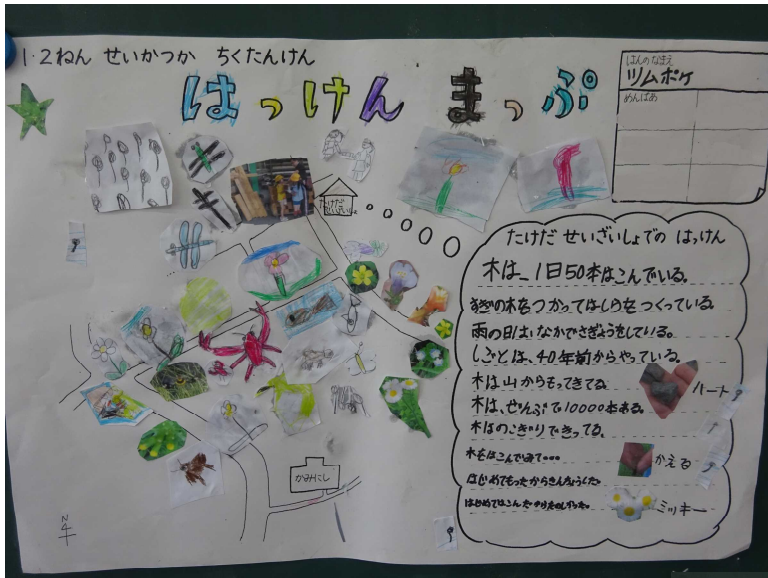 1・2ねん せいかつか ちくたんけん
はっけん まっぷ
はんのなまえ
ツムポケ
めんばあ
たけだ
せいざいしょ
たけだ せいざいしょでの はっけん
木は、1日50本はこんでいる。
すぎの木をつかってはしらをつくっている。
雨の日は、なかでさぎょうをしている。
しごとは、40年前からやっている。
木は山からもってきてる。
木は、ぜんぶで10000本ある。
木はのこぎりできってる。
木をはこんでみて・・・
はじめてもったからきんちょうした。
はじめてはこんだ
ハート
かえる
ミッキー
かみにし
N